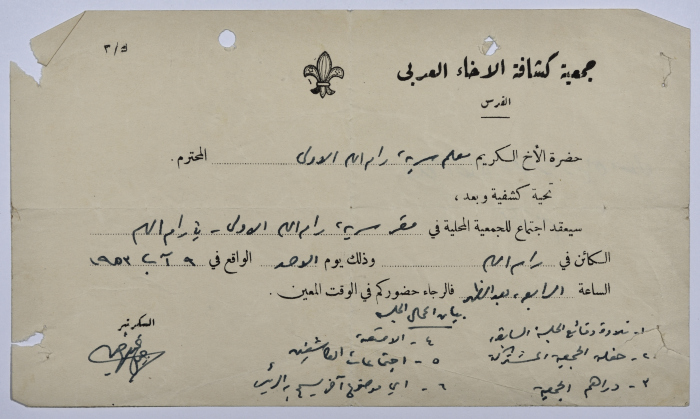 ك/٣
جمعية كشافة الاخاء العربي
القدس
حضرة الأخ الكريم معلم سرية رام الله الاولى المحترم .
تحية كشفية وبعد ،
سيعقد اجتماع للجمعية المحلية في مقر سرية رام الله الاولى - في رام الله
الكائن في رام الله وذلك يوم الاحد الواقع في ٩ آب ١٩٥٣
الساعة الرابعة بعد الظهر فالرجاء حضوركم في الوقت المعين .
بيان اعمال الجلسة
١- تلاوة وقائع الجلسة السابقة
٢- حفلة الجمعية المشتركة
٣- دراهم الجمعية
٤- الامتعة
٥- اجتماعات
٦- اي موضوع آخر يسمح به الرئيس
السكرتير